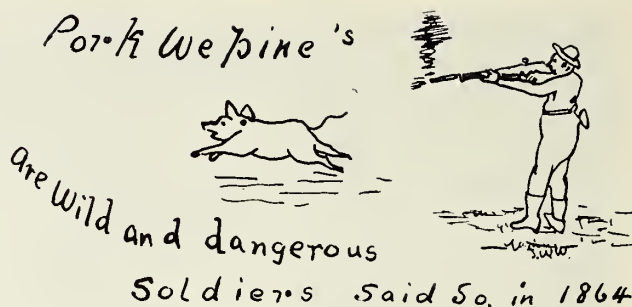 Pork We pine's
are Wild and dangerous
Soldiers Said So, in 1864
S.W.W.